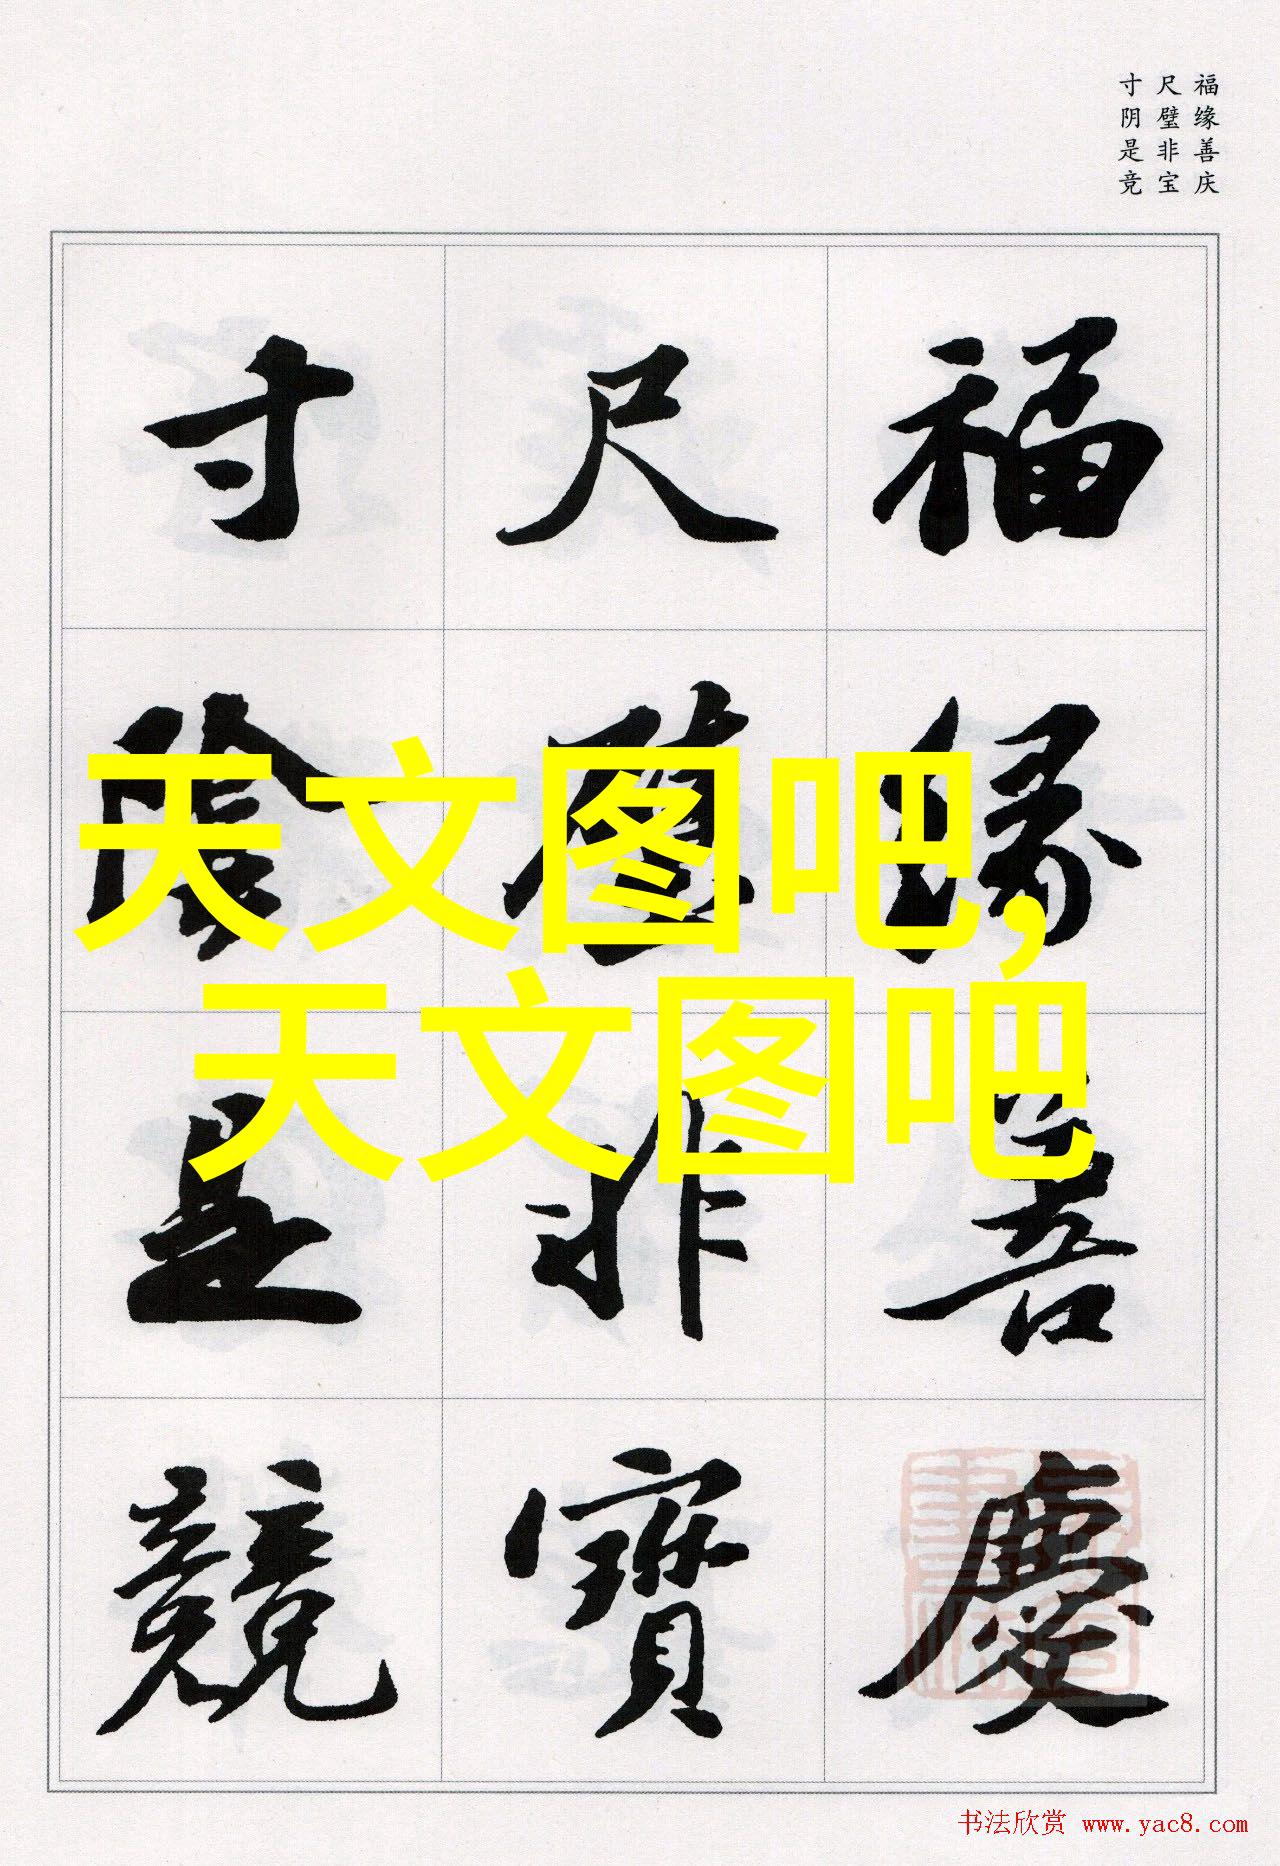 福缘善庆
尺璧非宝
寸阴是竞
福緣善慶
尺璧非寶
寸陰是競
天文图吧,
天文图吧
书法欣赏 www.yac8.com